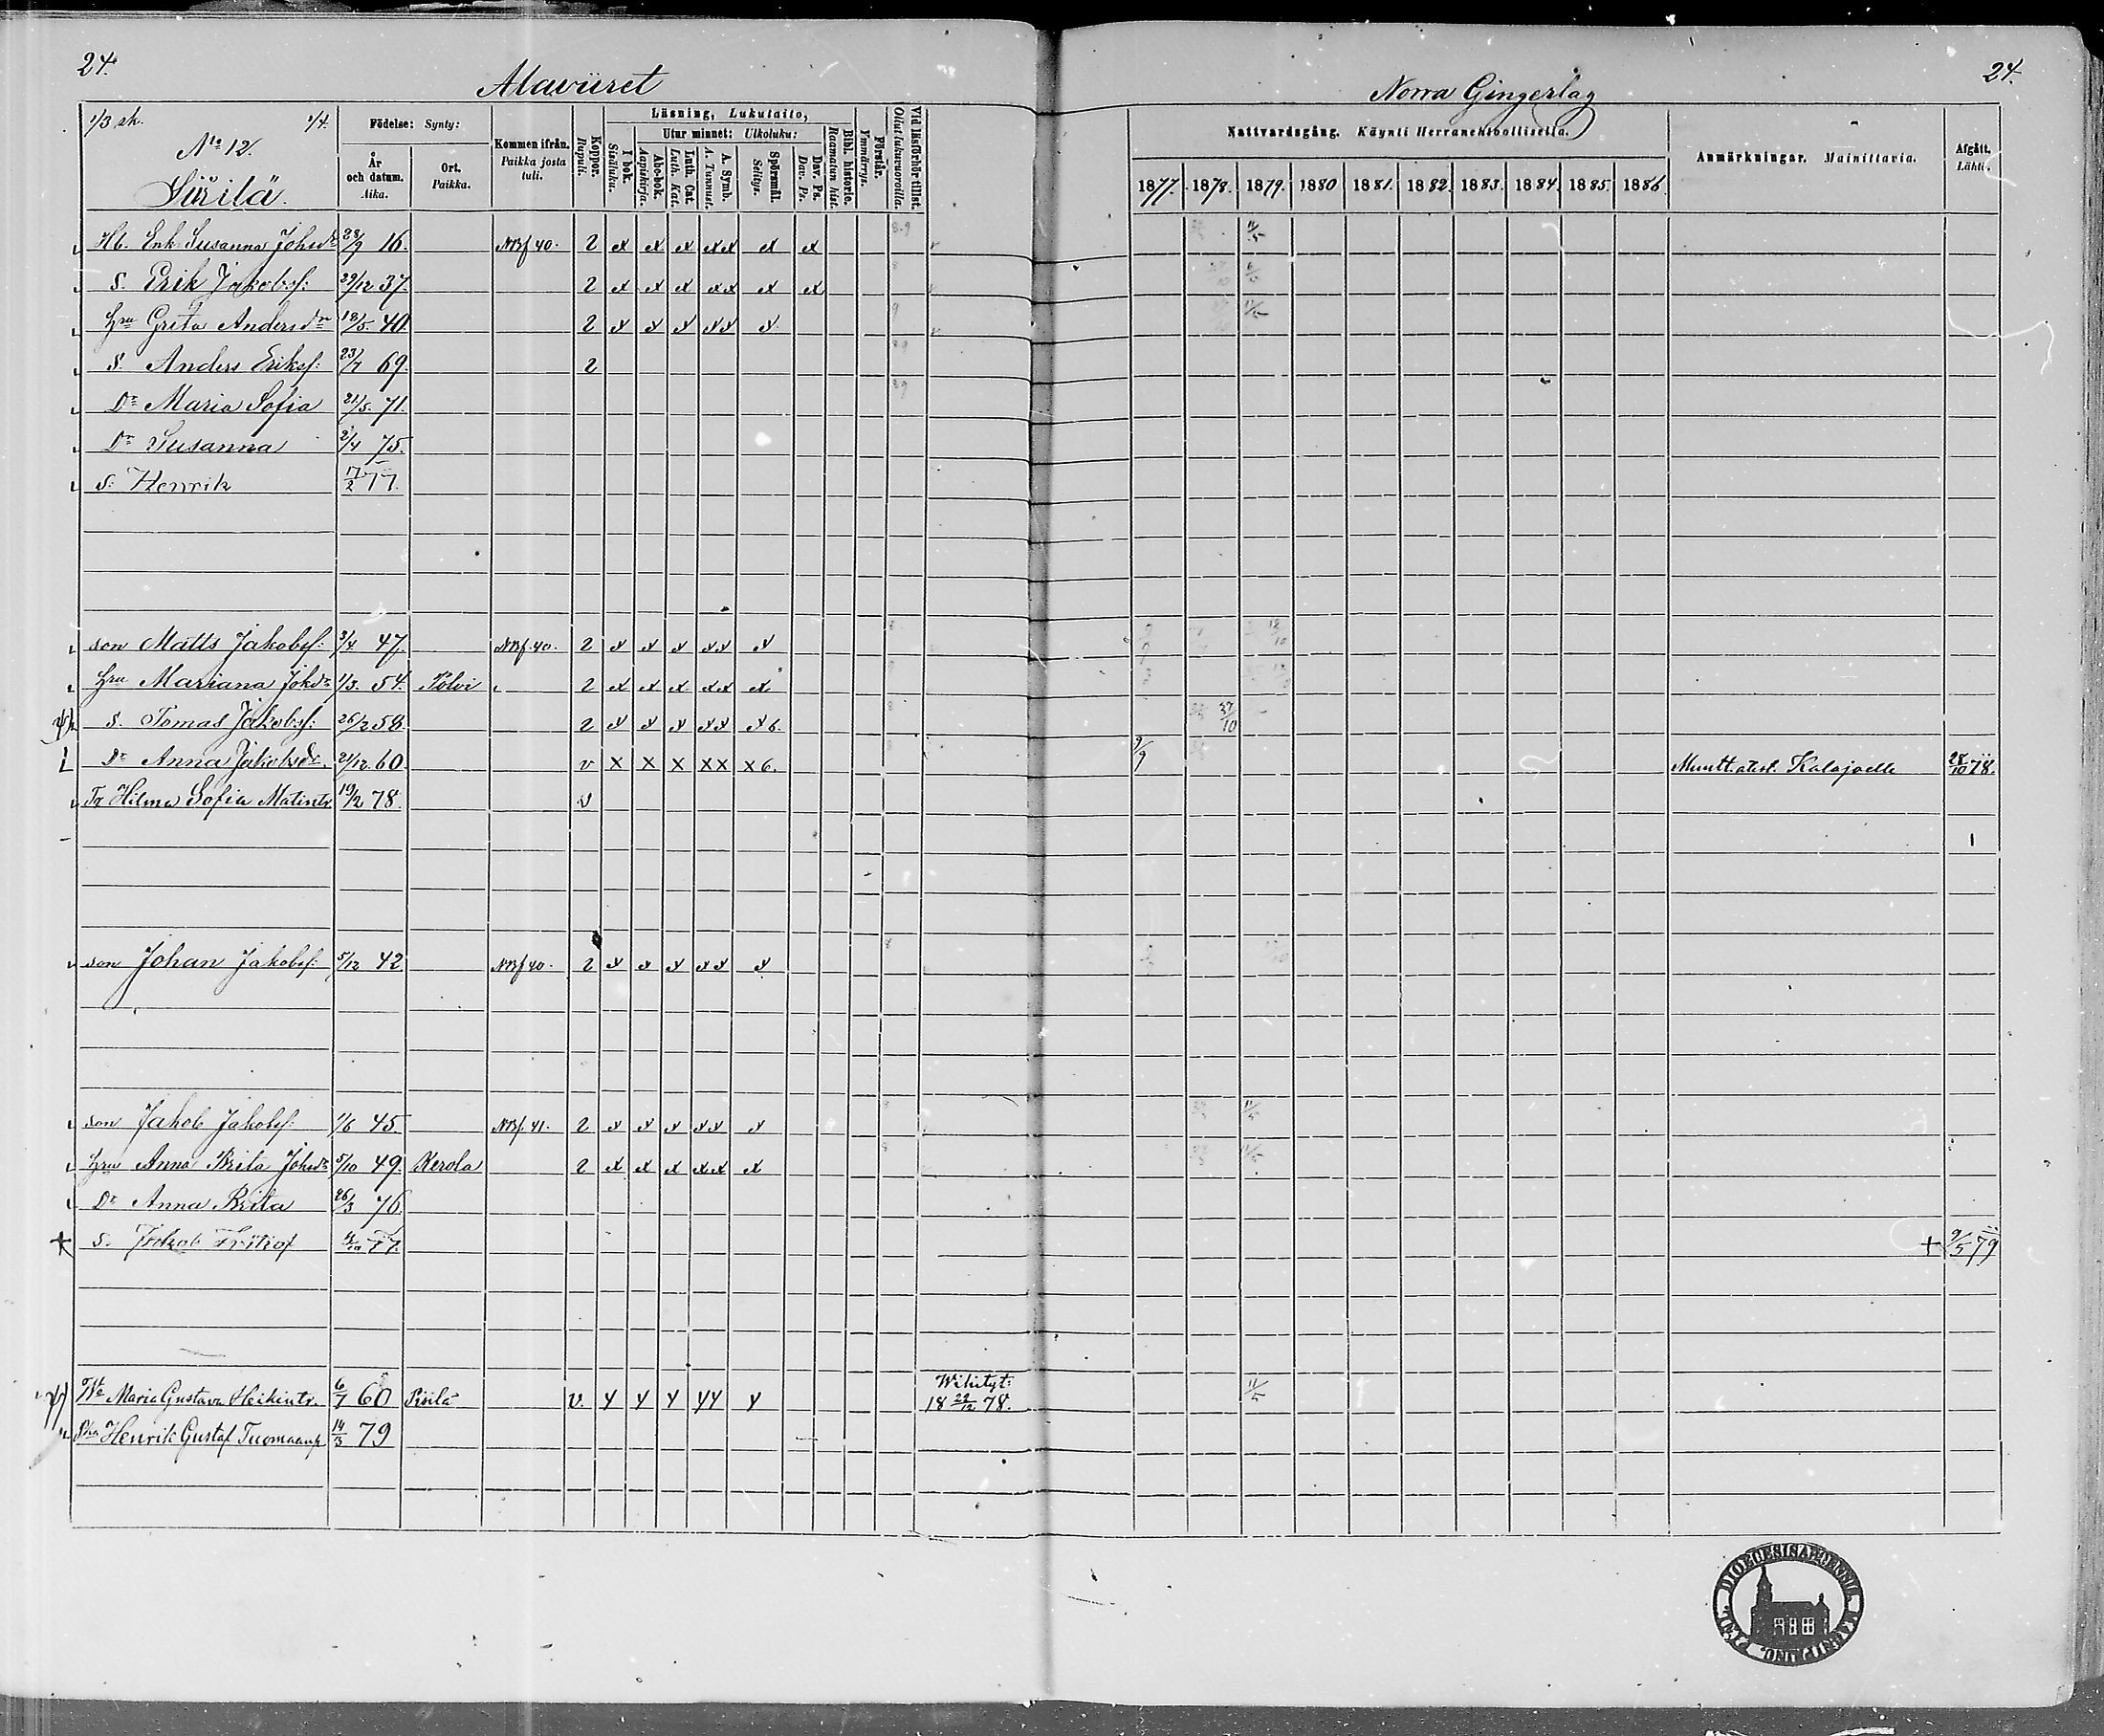 24.
Alaviiret
Norra Gingerlag
24.
1/3 sk. 1/4.
No 12.
Siirilä.
Födelse: Synty:
År och datum. Aika.
Ort. Paikka.
Kommen ifrån. Paikka josta tuli.
Koppor. Rupuli.
Läsning, Lukutaito,
I bok. Sisäluku.
Utur minnet: Ulkoluku:
Abc-bok. Aapiskirja.
Luth. Cat. Luth. Kat.
A. Symb. A. Tunnust.
Spörsmål. Selitys.
Dav. Ps. Dav. Ps.
Bibl. historie. Raamatun hist.
Förstår. Ymmärrys.
Vid läsförhör tillst. Ollut lukuvuoroilla.
Nattvardsgång. Käynti Herranehtoollisella.
1877. 1878. 1879. 1880 1881. 1882. 1883. 1884. 1885. 1886.
Anmärkningar. Mainittavia.
Afgått. Lähti.
Hb. Enk. Susanna Johsdr 28/9 16. NBf 40. 2 x x x xx x x 11/5
S. Erik Jakobsf: 29/12 37. 2 x x x xx x x
Hru Greta Andersdr 18/5. 40. 2 x x x xx x 11/5
S. Anders Eriksf: 23/7 69. 2
Dr Maria Sofia 21/5. 71.
Dr Susanna 2/4 75.
S. Henrik 17/2 77.
son Matts Jakobsf: 3/4 47. NBf. 40. 2 x x x xx x
Hru Mariana Johdr 1/3. 54. Polvi 2 x x x xx x
S. Tomas Jakobsf: 26/2 58. 2 x x x xx x 6. 27/10
Dr Anna Jakobsdr. 21/12. 60. v x x x xx x 6. 9/9 Muutt. atest. Kalajoelle 28/10 78.
Tr Hilma Sofia Matintr. 19/2 78. v
son Johan Jakobsf: 5/12 42 NBf 40. 2 x x x xx x
son Jakob Jakobsf: 1/6 45. NBf. 41. 2 x x x xx x 11/5
Hru Anna Brita Johsdr 5/10 49. Kerola 2 x x x xx x 11/5
Dr Anna Brita 26/3 76.
+ S. Jakob Fritiof 77. + 9/5 79
Wo Maria Gustava Heikintr. 6/7 60 v. y y y yy y Wihityt: 11/5
18 22/12 78.
Henrik Gustaf Tuomaanp. 14/3 79